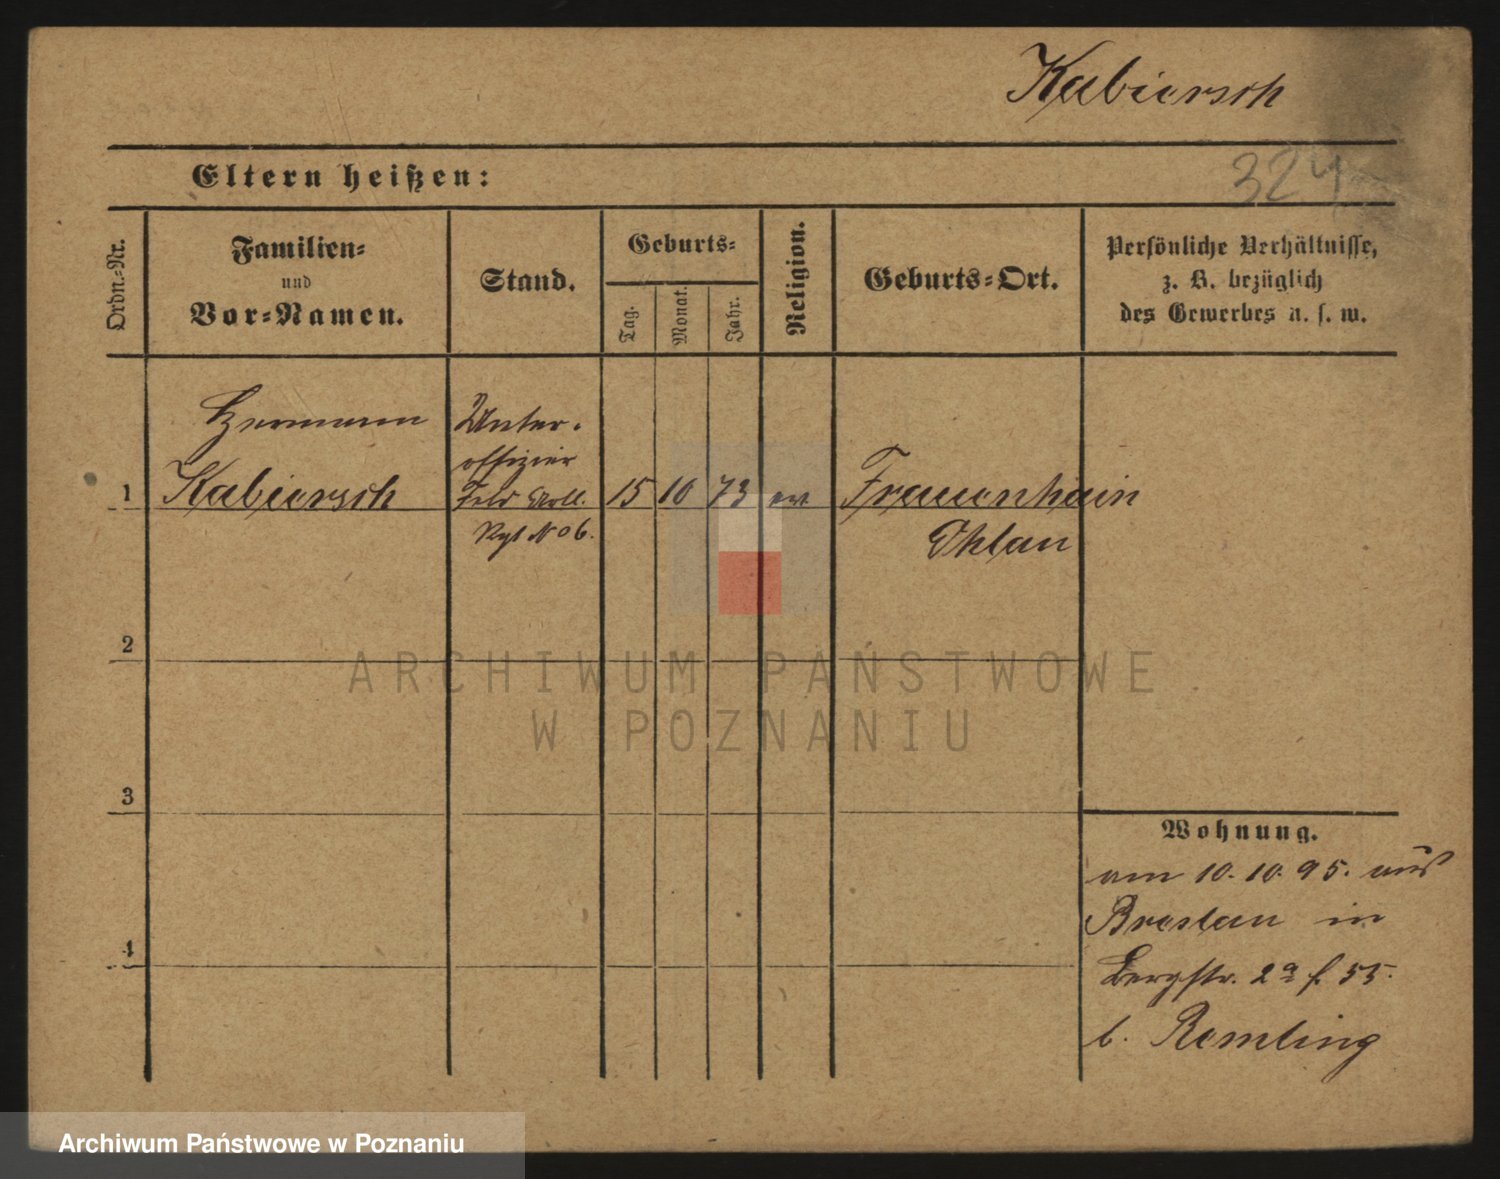 Kabiersch
Eltern heißen:
324
Ordn.-Nr.
Familien-
und
Vor-Namen.
Stand.
Geburts-
Tag.
Monat.
Jahr.
Religion.
Geburts-Ort.
Persönliche Verhältnisse,
z. B. bezüglich
des Gewerbes u. s. w.
Hermann
Kabiersch
Unter-
offizier
Feld Artll.
Rgt No 6.
1
15
10
73
ev
Frauenhain
Ohlau
2
3
4
Wohnung.
am 10. 10. 95. aus
Breslau in
Bergstr. 2a f. 55.
b. Remling
ARCHIWUM PAŃSTWOWE
W POZNANIU
Archiwum Państwowe w Poznaniu